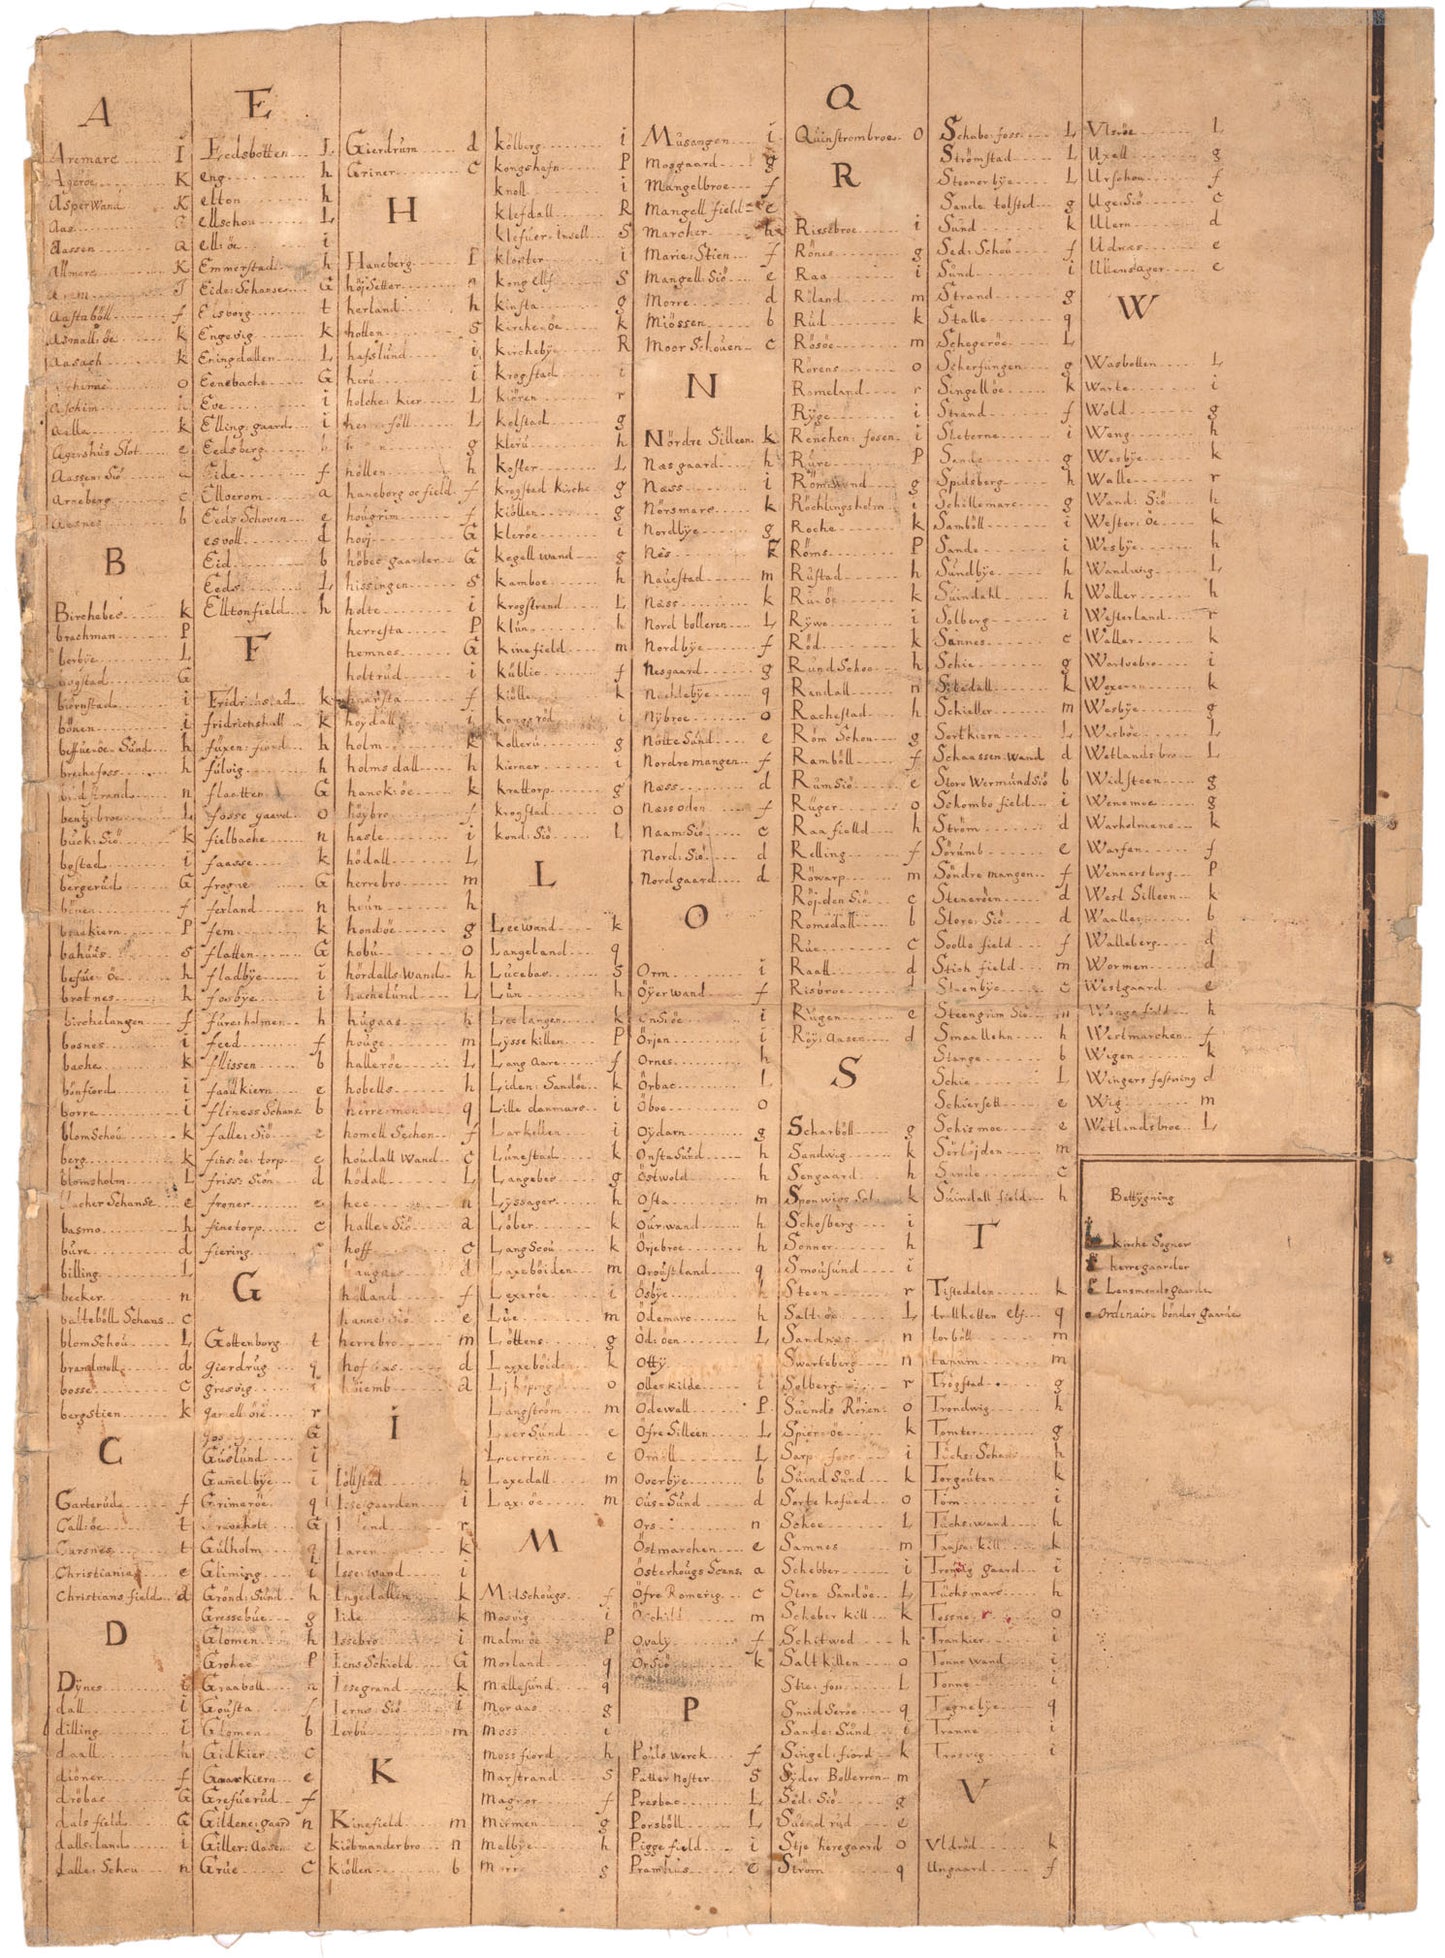 A
Aremarc I
Ageröe K
Asper Wand K
Aas G
Aassen a
Allmerc K
J
Aastaböll f
Asmall: öe k
Aasagh k
o
Aschim
Adla k
Agershus Slot e
Aassen: Siö
Arneberg c
Aasnes b
B
Birchebec k
brachman P
borbÿe L
bogstad G
biörnstad i
bönen i
beffueröe Sünd h
brechefoss h
n
bentz: broe L
bück: Siö k
bostad i
bergerüd G
bönen f
braekiern P
bahüüs s
befüe: öe h
brotnes h
birchelangen f
bosnes i
bache k
bönfiord i
borre i
blomSchoú k
berg k
blomsholm L
Schanse e
basmo h
büre d
billing L
becker n
balteböll Schans c
blomSchoú L
brandwoll d
bosse c
bergstien k
C
Garterüde f
Call: öe t
Carsnes t
Christiania e
Christians field d
D
Dÿnes i
dall i
dilling i
daall h
diöner f
dröbac G
dals field G
dalls: land i
dalle: Schou n
E
Eedsbotten L
eng h
elton h
ellschou L
ell: öe i
Emmerstad h
Eide: Schanse G
Eisborg t
Engevig k
Eningdallen L
Eenebache G
Eve i
Elling: gaard i
Eedsberg
Eide f
Elloerom a
Eeds Schoven e
esvoll d
Eid b
Eeds L
Elltonfield h
F
k
fridrichshall k
füxen: fiord h
fülvig h
flaatten G
fosse gaard o
fielbache n
faasse k
frogne G
ferland n
fem k
flatten G
fladbÿe i
fosbÿe i
füresholmen h
feed f
fllissen b
faaülkiern e
fliness Schans b
falle: Siö e
fins: öe: torp e
friss: Siön d
froner e
finetorp c
fiering
G
Gottenborg t
gierdrug q
gresvig i
Garell öre r
G
Güslünd i
Gamel: bÿe i
Grimeröe q
Graveholt G
Gülholm q
Gliming i
Grönd: Sünd h
Gressebüe g
Glomen h
Grohoe P
Graaboll n
Goüsta f
Glomen b
Gidkier c
Graarkiern e
Grefüerüd f
Gildene: gaard n
Giller: Aasen e
Grüe c
Gierdrüm d
Griner c
H
Haneberg P
höjSetter n
herland h
hollen s
hafslünd i
herü i
holche: kier L
L
g
höllen h
haneborg oe field f
hougrim f
hovj G
höbes gaarden G
hissingen s
holte i
herresta P
hemnes G
holtrüd i
f
höydall i
holm k
holms dall h
hanck: öe k
höybro f
hasle i
hödall L
herrebro m
heün h
hondöe g
hobü o
hördalls: Wand h
hachelünd L
hügaas h
hoüge m
halleröe L
hobells h
herremon q
homell Sechen f
houdall Wand c
hödall L
hee n
halle: Siö a
hoff c
d
hölland f
hanne: Siö e
herrebro m
d
hiemb a
i
Iöllstad h
Issegaarden i
r
Iaren k
Isse: wand i
Ingedallen k
Iide k
Issebro i
Iens Schiold G
Issegrand k
Ierns Siö i
Ierbü m
K
Kinefield m
kiöbmanderbro n
kiöllen b
kölberg i
kongshafn P
knoll i
klefdall R
klefüer: insell S
kloster i
kong ellf S
kinsta g
kirche: öe k
kirchebÿe R
krogstad i
kiören r
kolstad g
klerü h
koster L
krogstad kirche g
kiöllen g
kleröe i
kegell wand g
kamboe h
krogstrand L
klün h
kinefield m
küblie f
kiölle k
kongeröd i
kollerü g
kierner i
krattorp g
krogstad o
kond: Siö L
L
Leewand k
Langeland q
Lucebac S
Lün h
Leelangen k
Lÿsse killen P
Lang aare f
Liden: Sandöe k
Lille danmarc i
Larkollen i
Lünestad k
Langeber g
Lÿssager h
Löber k
LangScoü k
Laxeböiden m
Lexeröe i
Lüe m
Löttens g
Laxxeböid k
o
Langström m
Leersünd e
Leerren e
Laxedall m
Lax: öe m
M
MilSchougs f
mosvig i
malm: öe P
morland q
mallesünd q
moraas g
moss i
moss fiord h
marstrand s
magnor f
mürmen g
melbÿe h
morr g
Müsangen i
mosgaard g
Mangelbroe f
Mangell field e
marcher h
Marie: Stien f
Mangell: Siö e
Morre d
Miössen b
Moor Schouen c
N
Nördre Silleen k
Næsgaard h
Næss i
Nörsmarc k
Nordbÿe g
Nes k
Nauestad m
Næss k
Nord bolleren L
Nordbÿe f
Nesgaard g
Nachlebÿe q
Nÿbroe o
NötteSünd e
Nordre mangen f
Næss d
Næssoden f
Naam: Siö c
Nord: Siö d
Nordgaard d
O
Orm i
Öÿer wand f
i
Örjen i
Ornes h
Örbac L
Öboe o
Oÿdarn g
ÖnstaSünd h
Östwold h
Osta m
Oürwand h
Örjebroe h
Oroüstland q
Ösbÿe h
Ödemarc h
Öd: öen L
Ottÿ
olleskilde i
Ödewall P
Öfre Silleen L
Omöll L
Overbÿe b
Öüse Sünd d
Ors n
Östmarchen e
Österhougs Scans a
Öfre Romerig c
Örchild m
Ovalÿ f
OrSiö k
P
Poüls werck f
Patter Noster s
Presbac L
Porsböll L
Pigge field i
Pramhüs e
Q
Quinstrombroe o
R
Rissebroe i
Rönes g
Raa i
Röland m
Rüd k
Rösöe m
Rörens o
Romeland r
Rÿge i
Renchen: fosen i
Rüre P
RömWand g
Röchlingsholm i
Roche k
Röms P
Rüstad h
Rü: öe k
Rÿwo i
Röd k
RündSchoe h
Randall n
Rachestad h
Röm Schou g
Ramböll f
RümSiö e
Rüger o
Raa fielld h
Relling f
Röwarp m
Röj: den Siö c
Romedall b
Rüe c
Raatt d
Risbroe
Rügen e
Röÿ: Aasen d
S
Scharböll g
Sandwig k
Sengaard h
Sponwigs Sch k
Schosberg i
Sonner h
Smoüsünd i
Steen r
Salt: öe L
Sandnes n
Swarteberg n
Solberg r
Süends Rören o
Spier: öe k
Sarp foss i
Süind Sünd k
Sorte hofued o
Schee L
Samnes m
Schebber i
Store Sandöe L
Scheber kill k
Schitwed h
Salt killen o
Stie: foss L
Smid Seröe q
Sande: Sünd i
Singel: fiord k
Sÿder Bolleren m
Süd: Siö g
Süendrüd e
Stje heregaard o
Ström q
Schabe: foss L
Strömstad L
Steenerbÿe L
Sande tolsted g
Sünd k
Sed: Schoü f
Sünd i
Strand g
Stalle q
Schogeröe L
Scherfüngen g
Singellöe k
Strand f
Sleterne i
Sande g
Spidsberg h
Schillemarc g
Samböll i
Sande i
Sündbÿe h
Süindahl h
Solberg i
Sannes c
Schie g
Stkedall k
Schieller m
Sortkiern L
Schaassen: wand d
Store Wermünd Siö b
Schombo field i
Ström d
Sörümb e
Söndre mangen f
Steneröen d
Store: Siö d
Soollo field f
Stich field m
Steenbÿe c
Steengrim Siö m
Smaallehn h
Stange b
Schie L
Schiersett e
Schismoe e
Sörlöjden m
Sande c
Süindall field h
T
Tistedalen k
trollhetten elj q
torböll m
tanum m
Trögstad g
Trondwig h
Tomter g
Tüchs: Schans h
Torgoüten k
Törn i
Tüchs: wand h
Tansse: kill k
Tronÿig gaard i
Tüchsmarc h
Tossne o
Trankier i
Tonne wand i
Tonne i
Tegnebÿe q
Tranne i
Trosvig i
V
Vldröd k
Ungaard f
Vlsröe L
Uxell g
Urschou f
Uge: Siö c
Ulern d
Udnæs e
Ullensager e
W
Wasbotten L
Warte i
Wold g
Weng h
Wesbÿe k
Walle r
Wand: Siö h
Wester: Öe k
Wesbÿe h
Wandwig L
Waller h
Westerland r
Waller k
Wartuebro i
Woxenan k
Wesbÿe g
Wasböe L
Wetlands bro L
Widsteen g
Wenemoe g
Warholmene k
Warfen f
Wennersborg P
West Silleen k
Waaller b
Walleberg d
Wormen d
Westgaard e
Wangefield h
Westmarchen f
Wigen k
Wingers festning d
Wiig m
Wetlandsbroe L
Bettÿgning
kirche Sogner
herregaarder
Lensmendsgaarde
ordinaire bönder gaarde